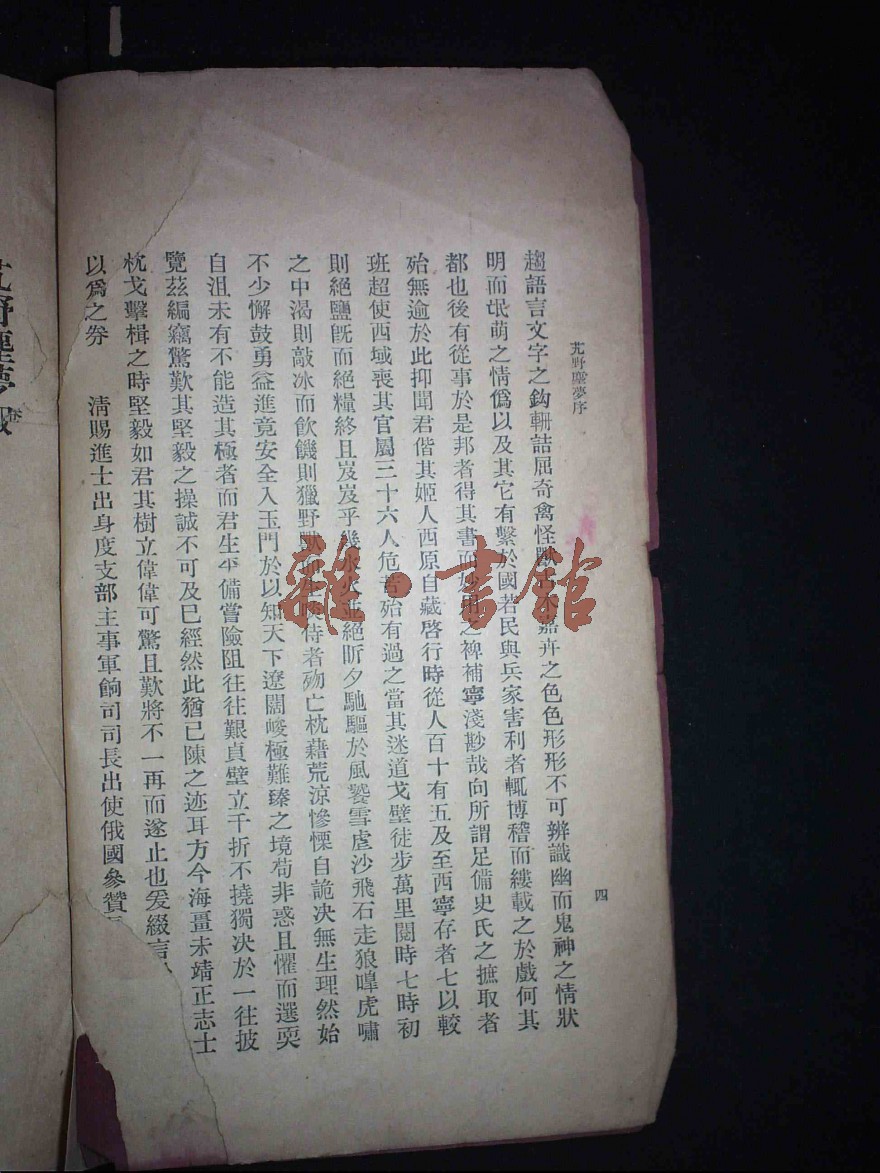 艽野塵夢序
四
趨語言文字之鈎輈詰屈奇禽怪獸木嘉卉之色色形形不可辨識幽而鬼神之情狀
明而氓萌之情僞以及其它有繫於國若民與兵家害利者輒博稽而縷載之於戲何其
都也後有從事於是邦者得其書而妙用之裨補寧淺尠哉向所謂足備史氏之摭取者
殆無逾於此抑聞君偕其姬人西原自藏啓行時從人百十有五及至西寧存者七以較
班超使西域喪其官屬三十六人危苦殆有過之當其迷道戈壁徒步萬里閱時七時初
則絕鹽旣而絕糧終且岌岌乎幾水火並絕昕夕馳驅於風饕雪虐沙飛石走狼嘷虎嘯
之中渴則敲冰而飲饑則獵野獸而生啖侍者殁亡枕藉荒涼慘慄自詭決無生理然始
不少懈鼓勇益進竟安全入玉門於以知天下遼闊峻極難臻之境苟非惑且懼而選耎
自沮未有不能造其極者而君生平備嘗險阻往往艱貞壁立千折不撓獨决於一往披
覽茲編竊驚歎其堅毅之操誠不可及巳經然此猶已陳之迹耳方今海畺未靖正志士
枕戈擊楫之時堅毅如君其樹立偉偉可驚且歎將不一再而遂止也爰綴言
以爲之券 淸賜進士出身度支部主事軍餉司司長出使俄國參贊
艽野塵夢
雜·書館